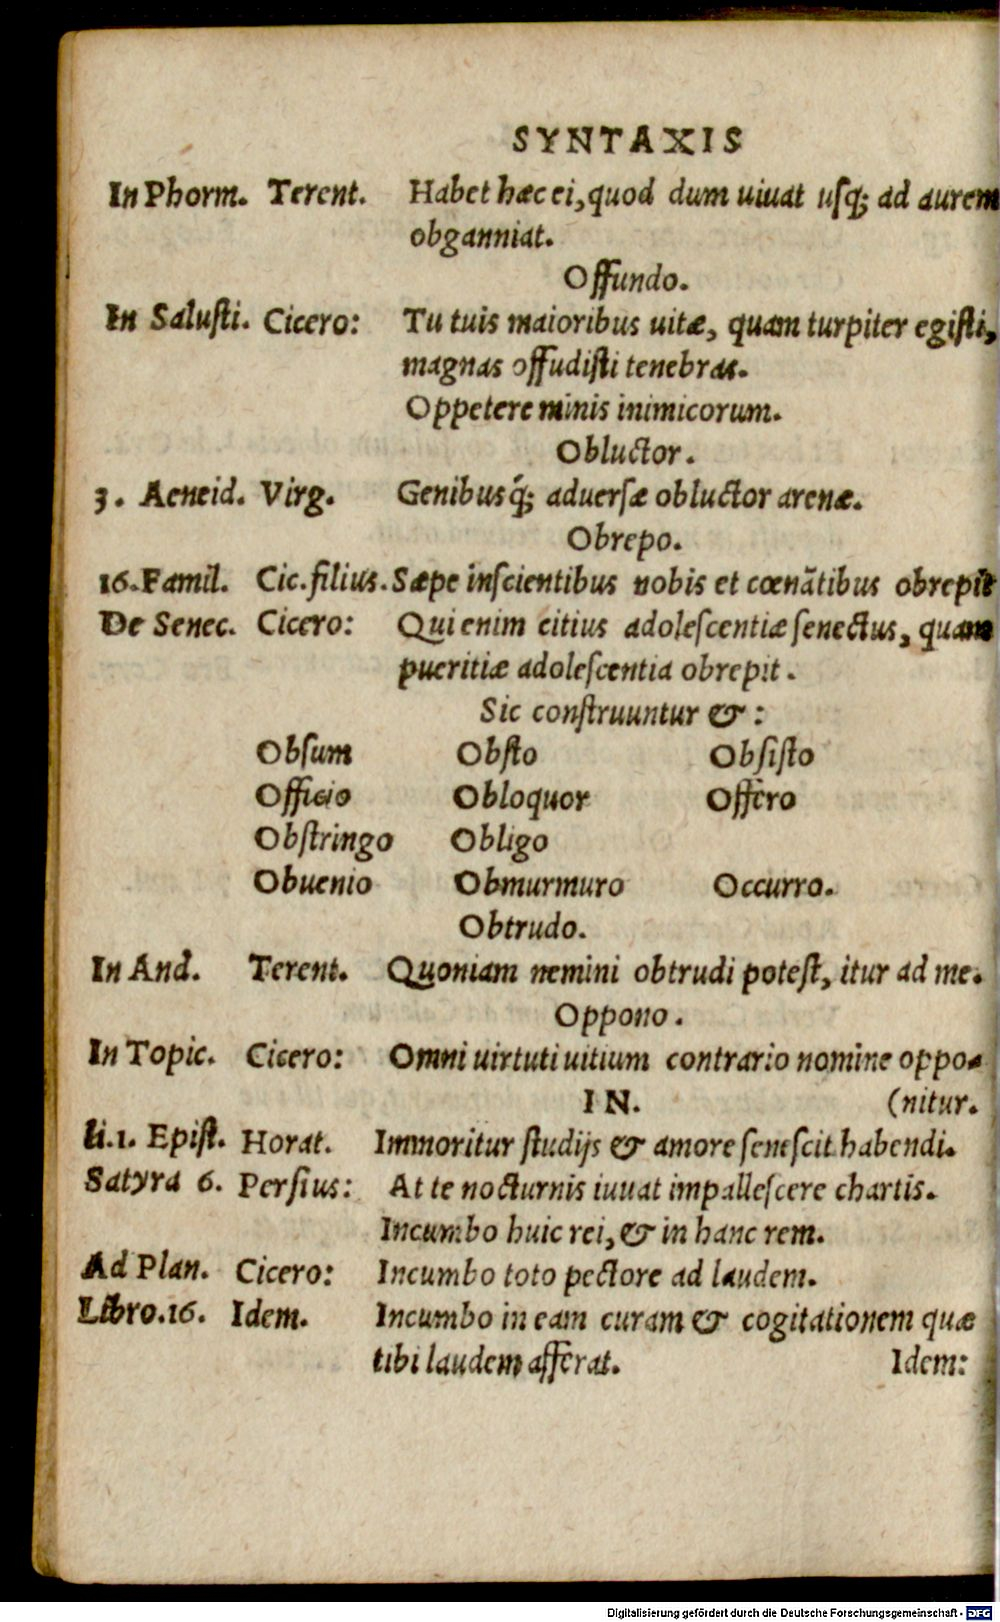 SYNTAXIS
In Phorm. Terent. Habet hæc ei, quod dum uiuat usq; ad aurem
obganniat.
Offundo.
In Salusti. Cicero: Tu tuis maioribus uitæ, quam turpiter egisti,
magnas offudisti tenebras.
Oppetere minis inimicorum.
Obluctor.
3. Aeneid. Virg. Genibusq́; aduersæ obluctor arenæ.
Obrepo.
16. Famil. Cic. filius. Sæpe inscientibus nobis et cœnãtibus obrepit
De Senec. Cicero: Qui enim citius adolescentiæ senectus, quam
pueritiæ adolescentia obrepit.
Sic construuntur &:
Obsum Obsto Obsisto
Officio Obloquor Offero
Obstringo Obligo
Obuenio Obmurmuro Occurro.
Obtrudo.
In And. Terent. Quoniam nemini obtrudi potest, itur ad me.
Oppono.
In Topic. Cicero: Omni uirtuti uitium contrario nomine oppo-
IN. (nitur.
li.1. Epist. Horat. Immoritur studijs & amore senescit habendi.
Satyra 6. Persius: At te nocturnis iuuat impallescere chartis.
Incumbo huic rei, & in hanc rem.
Ad Plan. Cicero: Incumbo toto pectore ad laudem.
Libro.16. Idem. Incumbo in eam curam & cogitationem quæ
tibi laudem afferat. Idem:
Digitalisierung gefördert durch die Deutsche Forschungsgemeinschaft - DFG